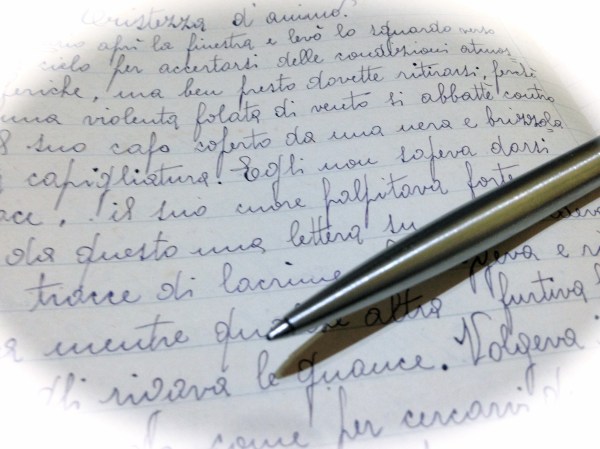 tristezza d'animo.
aprì la finestra e levò lo sguardo verso
cielo per accertarsi delle condizioni atmos
feriche, ma ben presto dovette ritirarsi, perchè
una violenta folata di vento si abbatte contro
il suo capo coperto da una nera e brizzola
capigliatura. Egli non sapeva darsi
pace, il suo cuore palpitava forte
da questo una lettera su
tracce di lacrime
mentre altra furtiva
gli rigava le guance. Volgeva
come per cercarvi